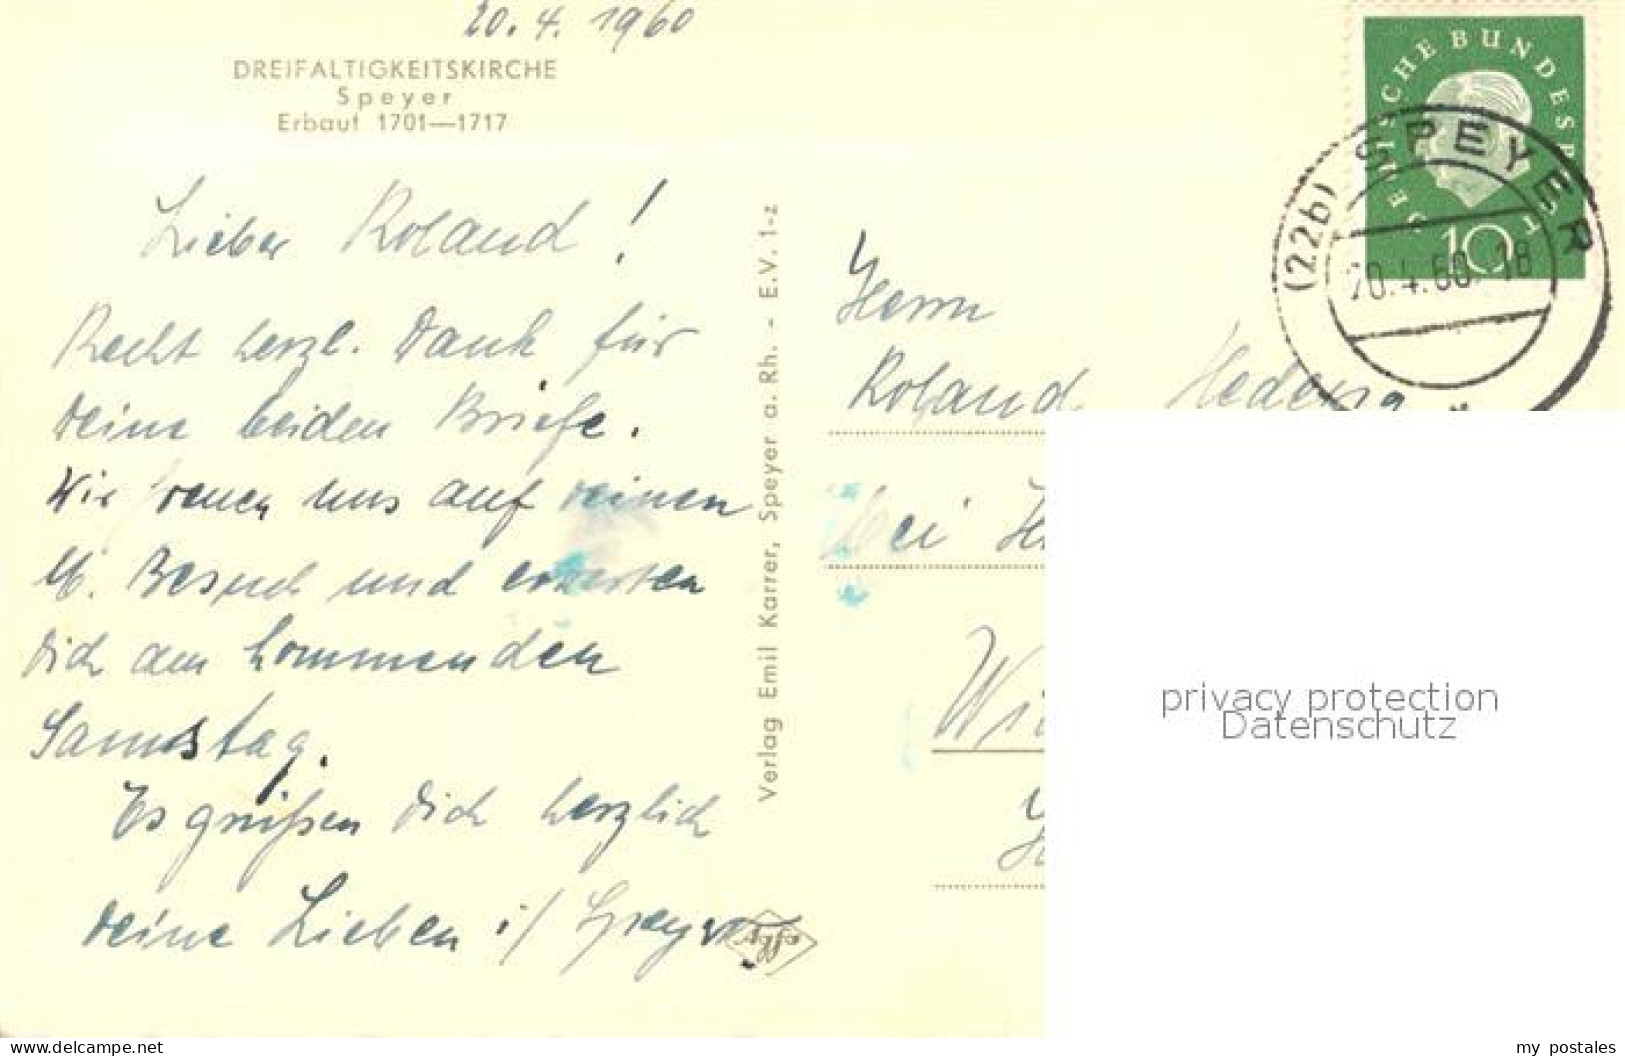 20. 4. 1960
DREIFALTIGKEITSKIRCHE
Speyer
Erbaut 1701—1717
Lieber Roland!
Recht herzl. Dank für
Deine beiden Briefe.
Wir freuen uns auf Deinen
lb. Besuch und erwarten
Dich am kommenden
Samstag.
Es grüßen Dich herzlich
Deine Lieben i/ Speyer
Verlag Emil Karrer, Speyer a. Rh. - E.V. 1-z
Agfa
DEUTSCHE BUNDESPOST
10
(22b) SPEYER
20.4.60.-18
Herrn
Roland
bei
privacy protection
Datenschutz
www.delcampe.net
my postales